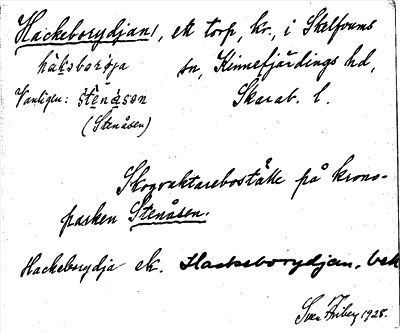 Hackeborydjan, ett torp, kr., i Skelfvums
håksborøja sn, Kinnefjärdings hd,
Vanligen: stenåsen Skarab. l.
(Stenåsen)
Skogvaktareboställe på krono-
parken Stenåsen.
Hackeborydja ek. Hackeborydjan. bek
Sven 1928.